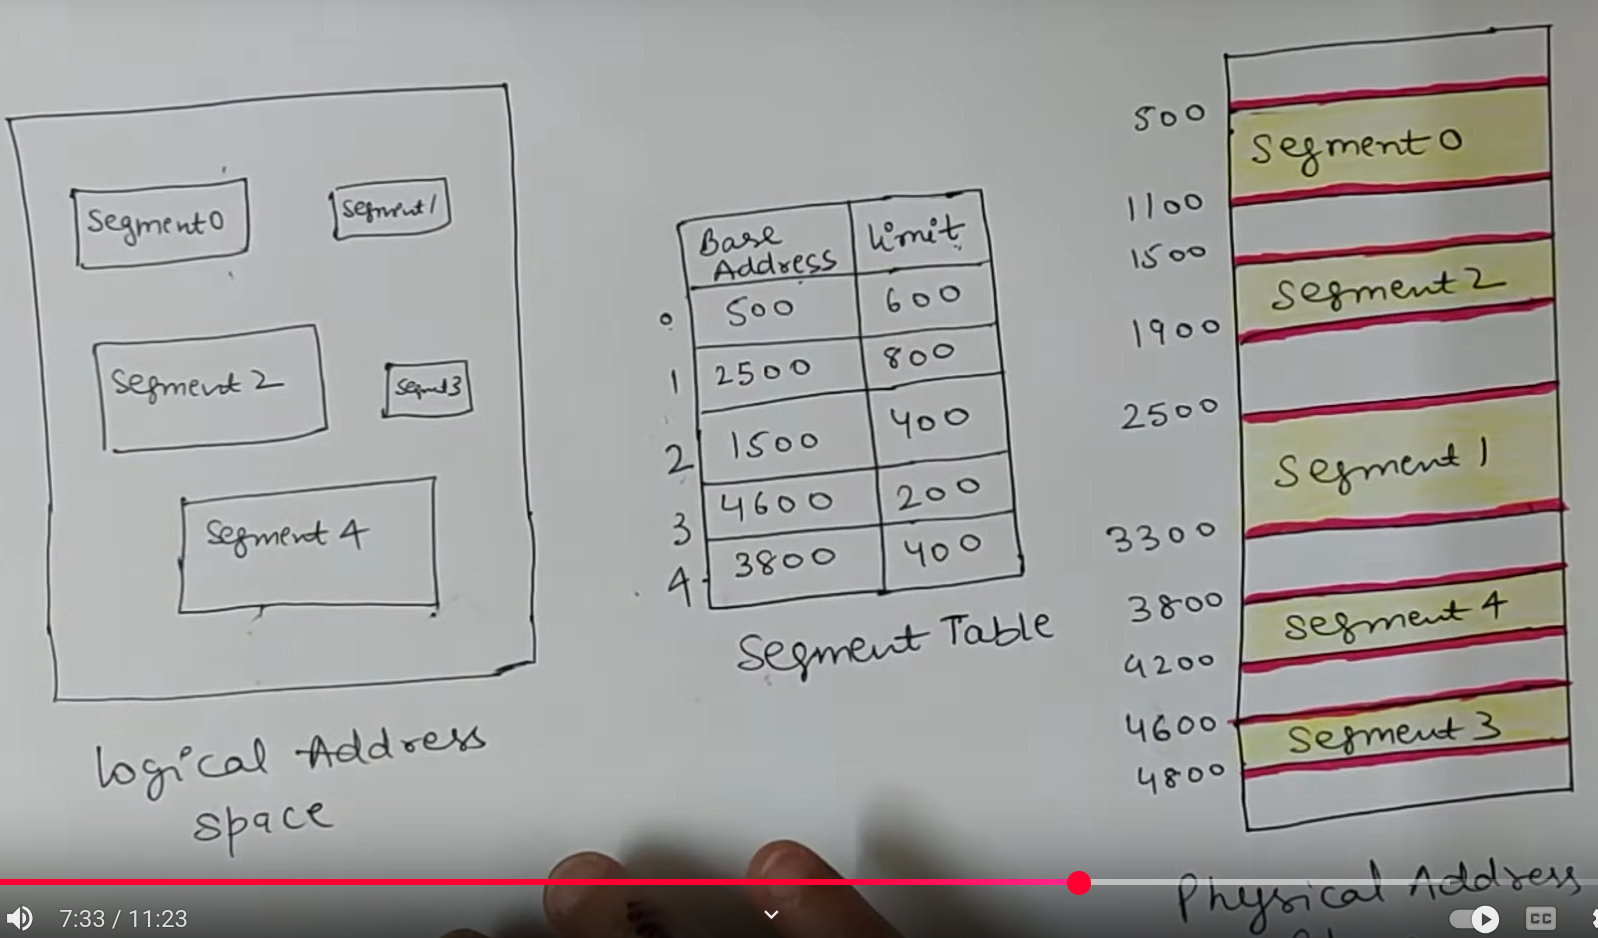 Segment 0
Segment 1
Segment 2
Segmt 3
Segment 4
Logical Address
space
Base
Address
Limit
0 500 600
1 2500 800
2 1500 400
3 4600 200
4 3800 400
Segment Table
500
Segment 0
1100
1500
Segment 2
1900
2500
Segment 1
3300
3800
Segment 4
4200
4600
Segment 3
4800
Physical Address
7:33 / 11:23
CC